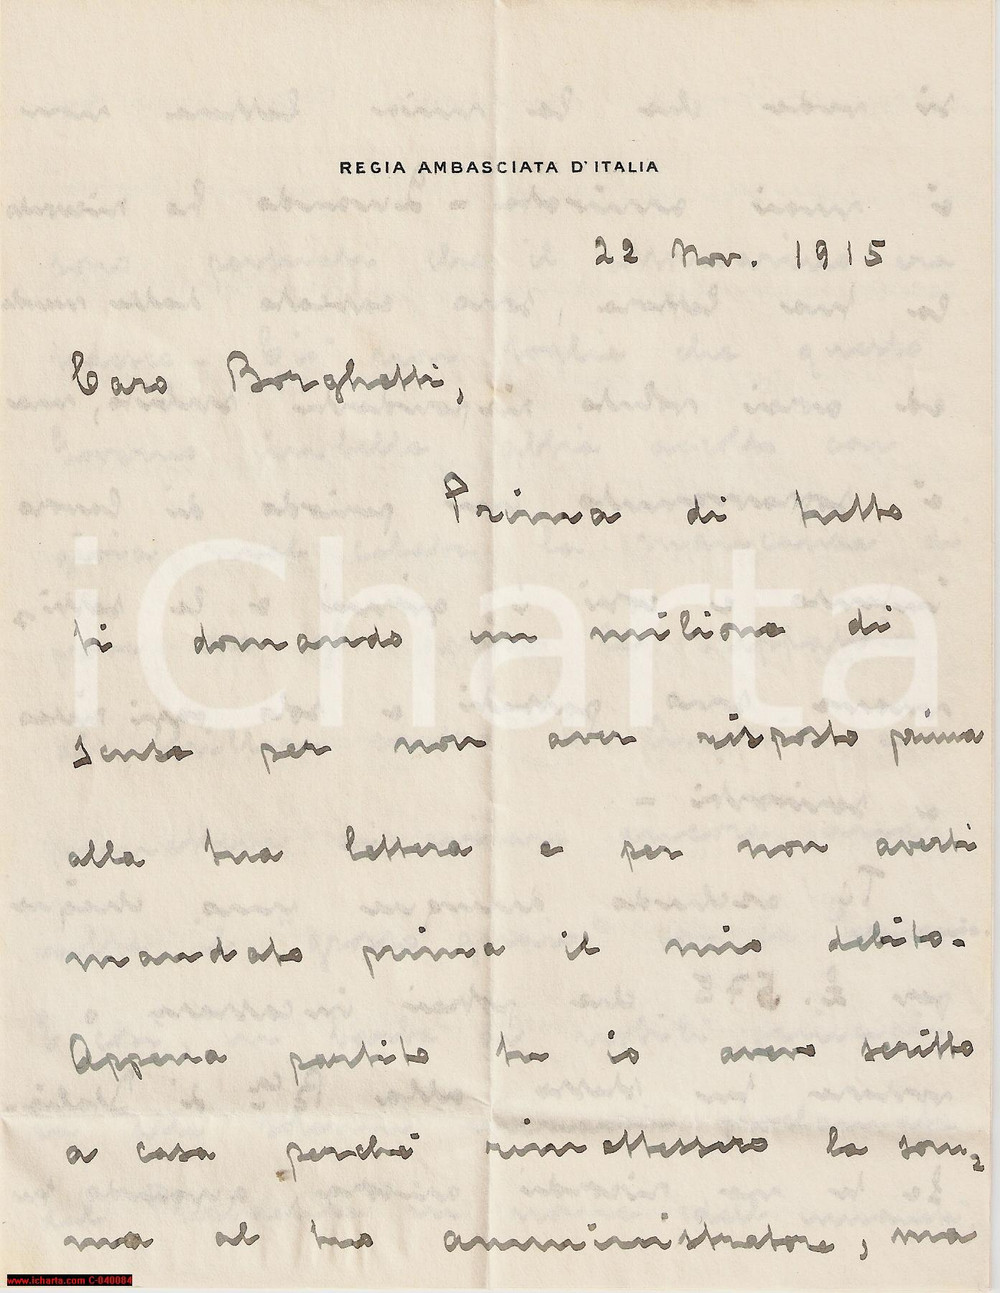 REGIA AMBASCIATA D'ITALIA
22 Nov. 1915
Caro Borghetti,
Prima di tutto
ti domando un milione di
scusa per non aver risposto prima
alla tua lettera e per non averti
mandato prima il mio debito.
Appena partito tu io avevo scritto
a casa perché rimettessero la som=
ma al tuo amministratore, ma
iCharta
www.icharta.com C-040084